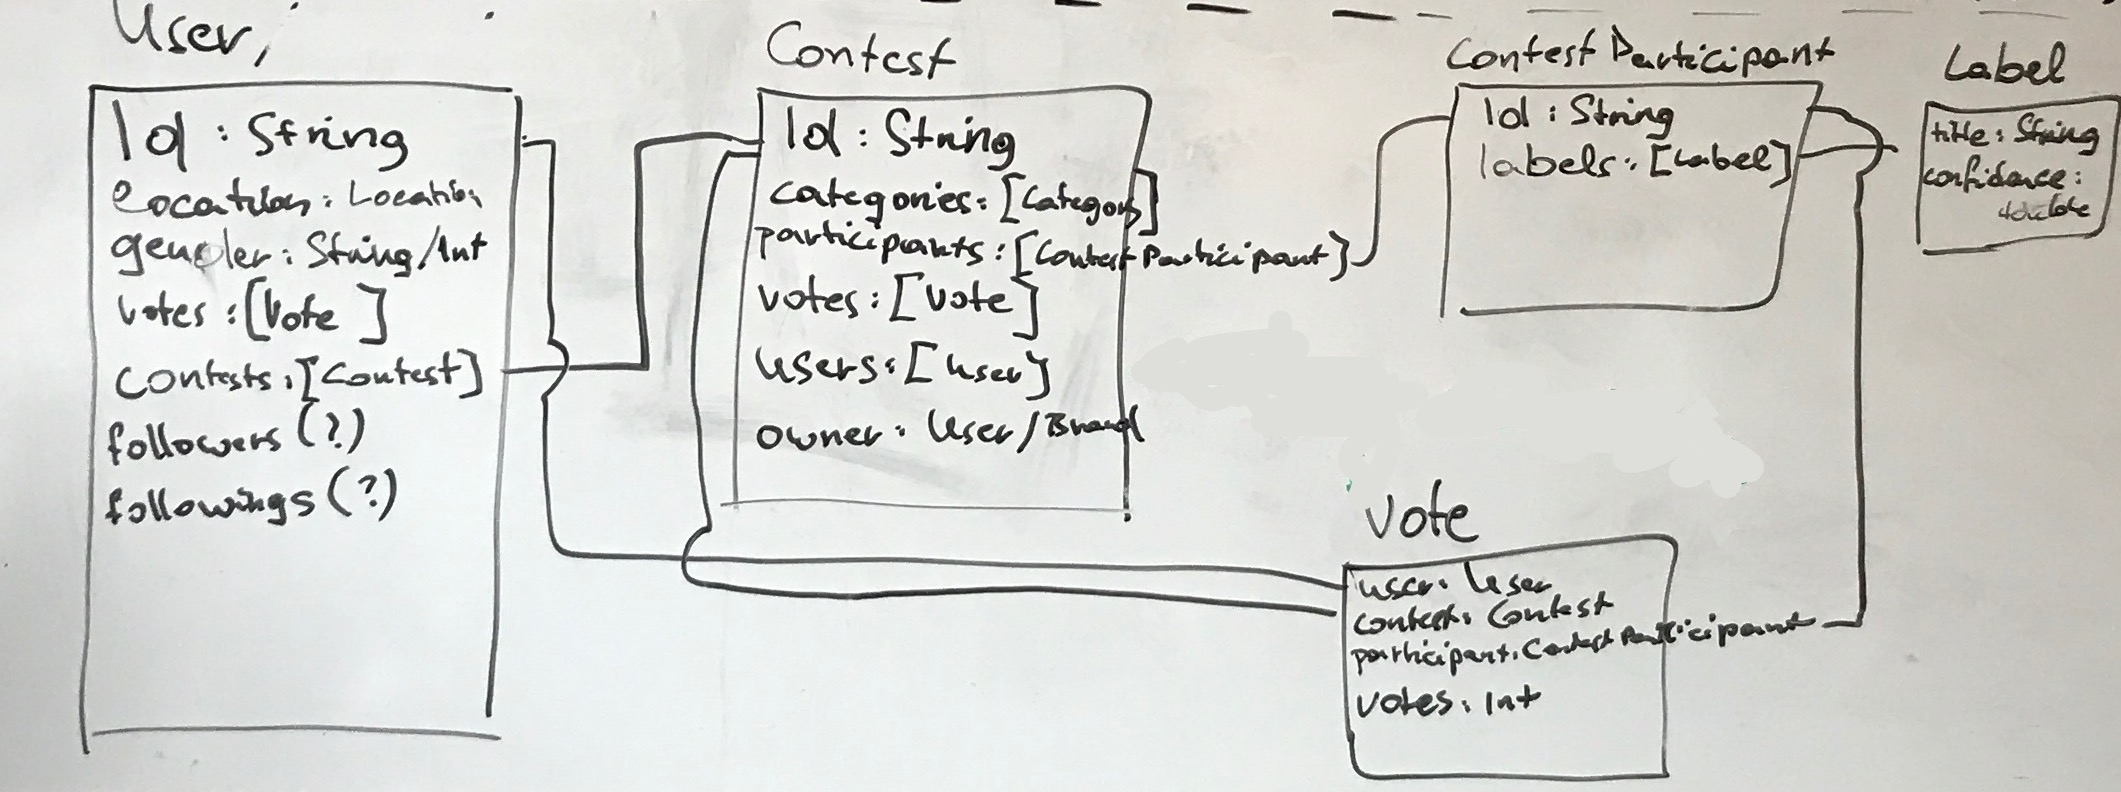 User,
Id : String
Location : Location
gender : String/Int
votes : [Vote ]
contests : [Contest]
followers (?)
followings (?)
Contest
Id : String
categories : [Category]
participants : [Contest Participant]
votes : [Vote]
users : [User]
owner : User / Brand
Contest Participant
Id : String
labels : [Label]
Label
title : String
confidance :
double
Vote
user : User
contest : Contest
participant : Contest Participant
votes : Int